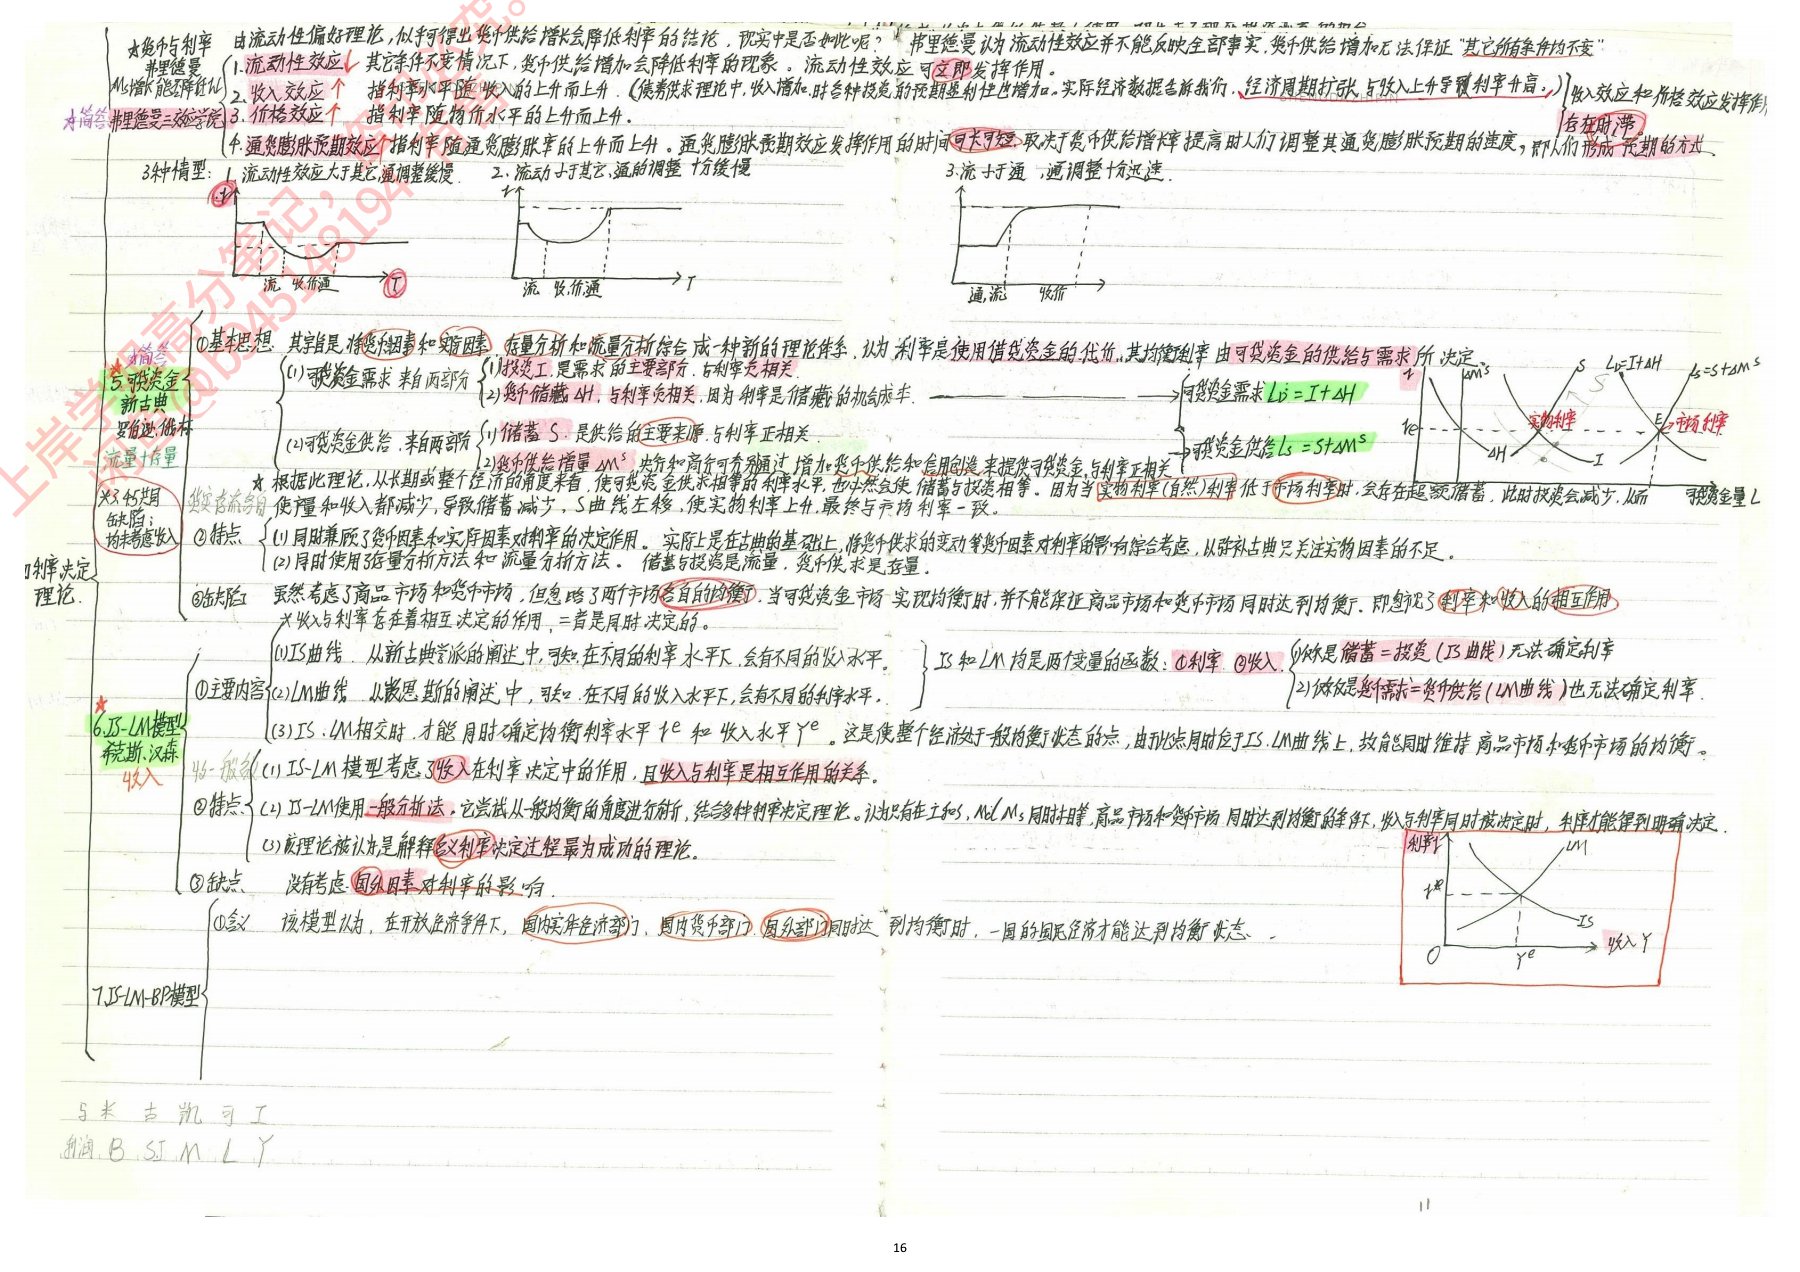 ☆货币与利率
弗里德曼
Ms增长能否降低i
☆简答 弗里德曼三效应学院
由流动性偏好理论,似乎可得出货币供给增长会降低利率的结论,现实中是否如此呢? 弗里德曼认为流动性效应并不能反映全部事实,货币供给增加无法保证"其它所有条件均不变"
1.流动性效应↓ 其它条件不变情况下,货币供给增加会降低利率的现象。流动性效应可立即发挥作用。
2.收入效应↑ 指利率水平随收入的上升而上升。(债券供求理论中,收入增加时各种投资的预期盈利性也增加。实际经济数据告诉我们,经济周期扩张与收入上升导致利率升高。)
3.价格效应↑ 指利率随物价水平的上升而上升。
收入效应和价格效应发挥作用
存在时滞。
4.通货膨胀预期效应↑指利率随通货膨胀率的上升而上升。通货膨胀预期效应发挥作用的时间可长可短,取决于货币供给增长率提高时人们调整其通货膨胀预期的速度,即人们形成预期的方式
3种情型: 1.流动性效应大于其它,通调整缓慢. 2.流动小于其它,通的调整十分缓慢 3.流小于通,通调整十分迅速.
i T 流 收.价通
i T 流 收.价通
i 通,流 收价
☆简答
5.可贷资金
新古典
罗伯逊.俄林
流量+存量
※3.4.5共同
缺陷:
均未考虑收入
①基本思想 其宗旨是将货币因素和实际因素 存量分析和流量分析综合成一种新的理论体系,认为利率是使用借贷资金的代价,其均衡利率由可贷资金的供给与需求所决定
(1)可贷资金需求来自两部分 1)投资I,是需求的主要部分,与利率负相关.
2)货币储藏ΔH,与利率负相关,因为利率是储藏的机会成本. → 可贷资金需求 LD=I+ΔH
(2)可贷资金供给,来自两部分 1)储蓄S.是供给的主要来源,与利率正相关.
2)货币供给增量ΔMs 央行和商行可分别通过增加货币供给和信用创造来提供可贷资金,与利率正相关 → 可贷资金供给 Ls=S+ΔMs
i ΔMs S LD=I+ΔH Ls=S+ΔMs
re 实物利率 E 市场利率
ΔH I
可贷资金量L
★根据此理论,从长期或整个经济的角度来看,使可贷资金供求相等的利率水平,也必然会使储蓄与投资相等。因为当实物利率(自然)利率低于市场利率时,会存在超额储蓄,此时投资会减少,从而
使产量和收入都减少,导致储蓄减少,S曲线左移,使实物利率上升,最终与市场利率一致。
②特点 (1)同时兼顾了货币因素和实际因素对利率的决定作用。实际上是在古典的基础上,将货币供求的变动等货币因素对利率的影响综合考虑,以弥补古典只关注实物因素的不足。
(2)同时使用了存量分析方法和流量分析方法。储蓄与投资是流量,货币供求是存量.
利率决定
理论.
③缺陷 虽然考虑了商品市场和货币市场,但忽略了两个市场各自的均衡了,当可贷资金市场实现均衡时,并不能保证商品市场和货币市场同时达到均衡.即忽视了利率和收入的相互作用
※收入与利率存在着相互决定的作用,二者是同时决定的。
★
6.IS-LM模型
希克斯、汉森
收入
①主要内容 (1)IS曲线 从新古典学派的阐述中,可知,在不同的利率水平下,会有不同的收入水平。
(2)LM曲线 从凯恩斯的阐述中,可知,在不同的收入水平下,会有不同的利率水平.
IS和LM均是两个变量的函数:①利率 ②收入. 1)仅仅是储蓄=投资(IS曲线)无法确定利率
2)仅仅是货币需求=货币供给(LM曲线)也无法确定利率.
(3)IS、LM相交时,才能同时确定均衡利率水平re和收入水平Ye。这是使整个经济处于一般均衡状态的点,由于此点同时位于IS.LM曲线上,故能同时维持商品市场和货币市场的均衡。
②特点 (1)IS-LM模型考虑了收入在利率决定中的作用,且收入与利率是相互作用的关系。
(2)IS-LM使用一般分析法。它尝试从一般均衡的角度进行分析,结合多种利率决定理论。认为只有在I和S,Md Ms同时相等,商品市场和货币市场同时达到均衡的条件下,收入与利率同时被决定时,利率才能得到明确决定.
(3)该理论被认为是解释名义利率决定过程最为成功的理论。
③缺点 没有考虑国外因素对利率的影响.
利率i LM re IS O Ye 收入Y
7.IS-LM-BP模型
①含义 该模型认为,在开放经济条件下,国内实体经济部门、国内货币部门、国外部门同时达到均衡时,一国的国民经济才能达到均衡状态.
与米 古 凯 可 I
利润 B SI M L Y
11
16